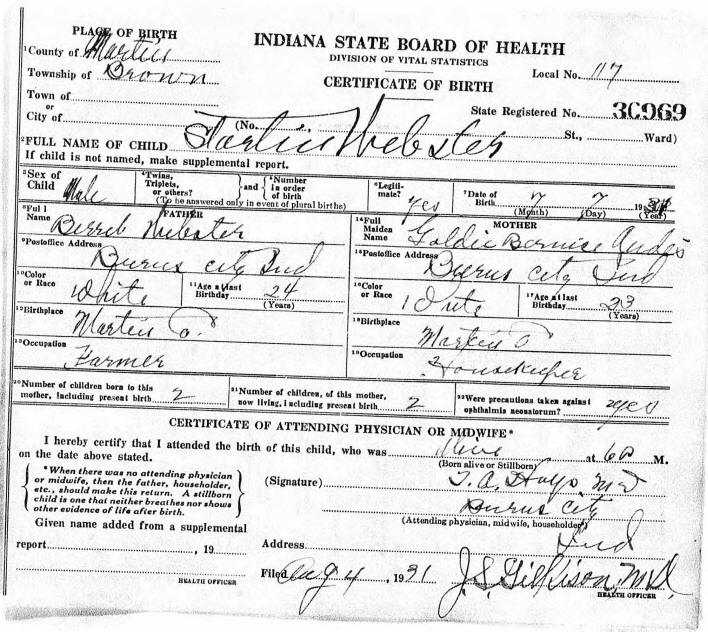 PLACE OF BIRTH
INDIANA STATE BOARD OF HEALTH
DIVISION OF VITAL STATISTICS
CERTIFICATE OF BIRTH
¹County of Martin
Township of Brown
Local No. 117
Town of
or
City of
State Registered No. 30969
(No. St., Ward)
²FULL NAME OF CHILD Webster
If child is not named, make supplemental report.
³Sex of Child Male
⁴Twins, Triplets, or others? and ⁵Number in order of birth
(To be answered only in event of plural births)
⁶Legiti-mate? Yes
⁷Date of Birth 7 7 19
(Month) (Day) (Year)
FATHER
⁸Full Name Webster
⁹Postoffice Address Burns City Ind
¹⁰Color or Race White
¹¹Age at last Birthday 24
(Years)
¹²Birthplace Martin Co.
¹³Occupation Farmer
MOTHER
¹⁴Full Maiden Name Goldie Bernice
¹⁵Postoffice Address Burns City Ind
¹⁶Color or Race White
¹⁷Age at last Birthday 23
(Years)
¹⁸Birthplace Martin
¹⁹Occupation Housekeeper
²⁰Number of children born to this mother, including present birth 2
²¹Number of children, of this mother, now living, including present birth 2
²²Were precautions taken against ophthalmia neonatorum? yes
CERTIFICATE OF ATTENDING PHYSICIAN OR MIDWIFE*
I hereby certify that I attended the birth of this child, who was Alive at M.
(Born alive or Stillborn)
on the date above stated.
*When there was no attending physician
or midwife, then the father, householder,
etc., should make this return. A stillborn
child is one that neither breathes nor shows
other evidence of life after birth.
(Signature) T. A. Hays MD
Burns City
(Attending physician, midwife, householder)
Given name added from a supplemental
report , 19
Address Ind
HEALTH OFFICER
Filed Aug 4, 1931 J. S. Gilkison, M.D.
HEALTH OFFICER